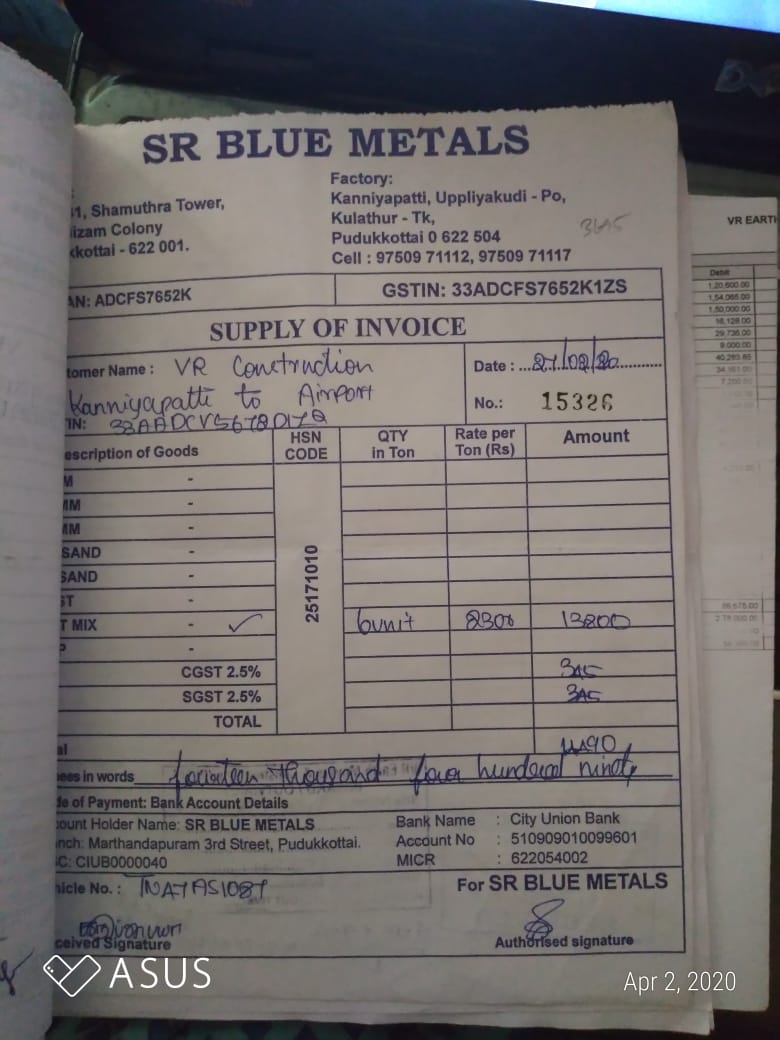 SR BLUE METALS
Factory:
1, Shamuthra Tower,
Kanniyapatti, Uppliyakudi - Po,
izam Colony
Kulathur - Tk,
kkottai - 622 001.
Pudukkottai 0 622 504
Cell : 97509 71112, 97509 71117
AN: ADCFS7652K
GSTIN: 33ADCFS7652K1ZS
SUPPLY OF INVOICE
tomer Name : VR Constrution
Date : 27/02/20
Kanniyapatti to Airport
No.: 15326
IN:
escription of Goods HSN CODE QTY in Ton Rate per Ton (Rs) Amount
M -
MM -
MM -
SAND -
SAND -
ST -
25171010
T MIX ✓ 6unit 2300 13800
P -
CGST 2.5% 345
SGST 2.5% 345
TOTAL
al 14490
ees in words fourteen thousand four hundred ninety
de of Payment: Bank Account Details
ount Holder Name: SR BLUE METALS
Bank Name : City Union Bank
nch: Marthandapuram 3rd Street, Pudukkottai.
Account No : 510909010099601
C: CIUB0000040
MICR : 622054002
hicle No. :
For SR BLUE METALS
ceived Signature
Authorised signature
VR EARTH
Debit
1,20,600.00
1,54,065.00
1,50,000.00
16,128.00
29,736.00
9,000.00
ASUS
Apr 2, 2020